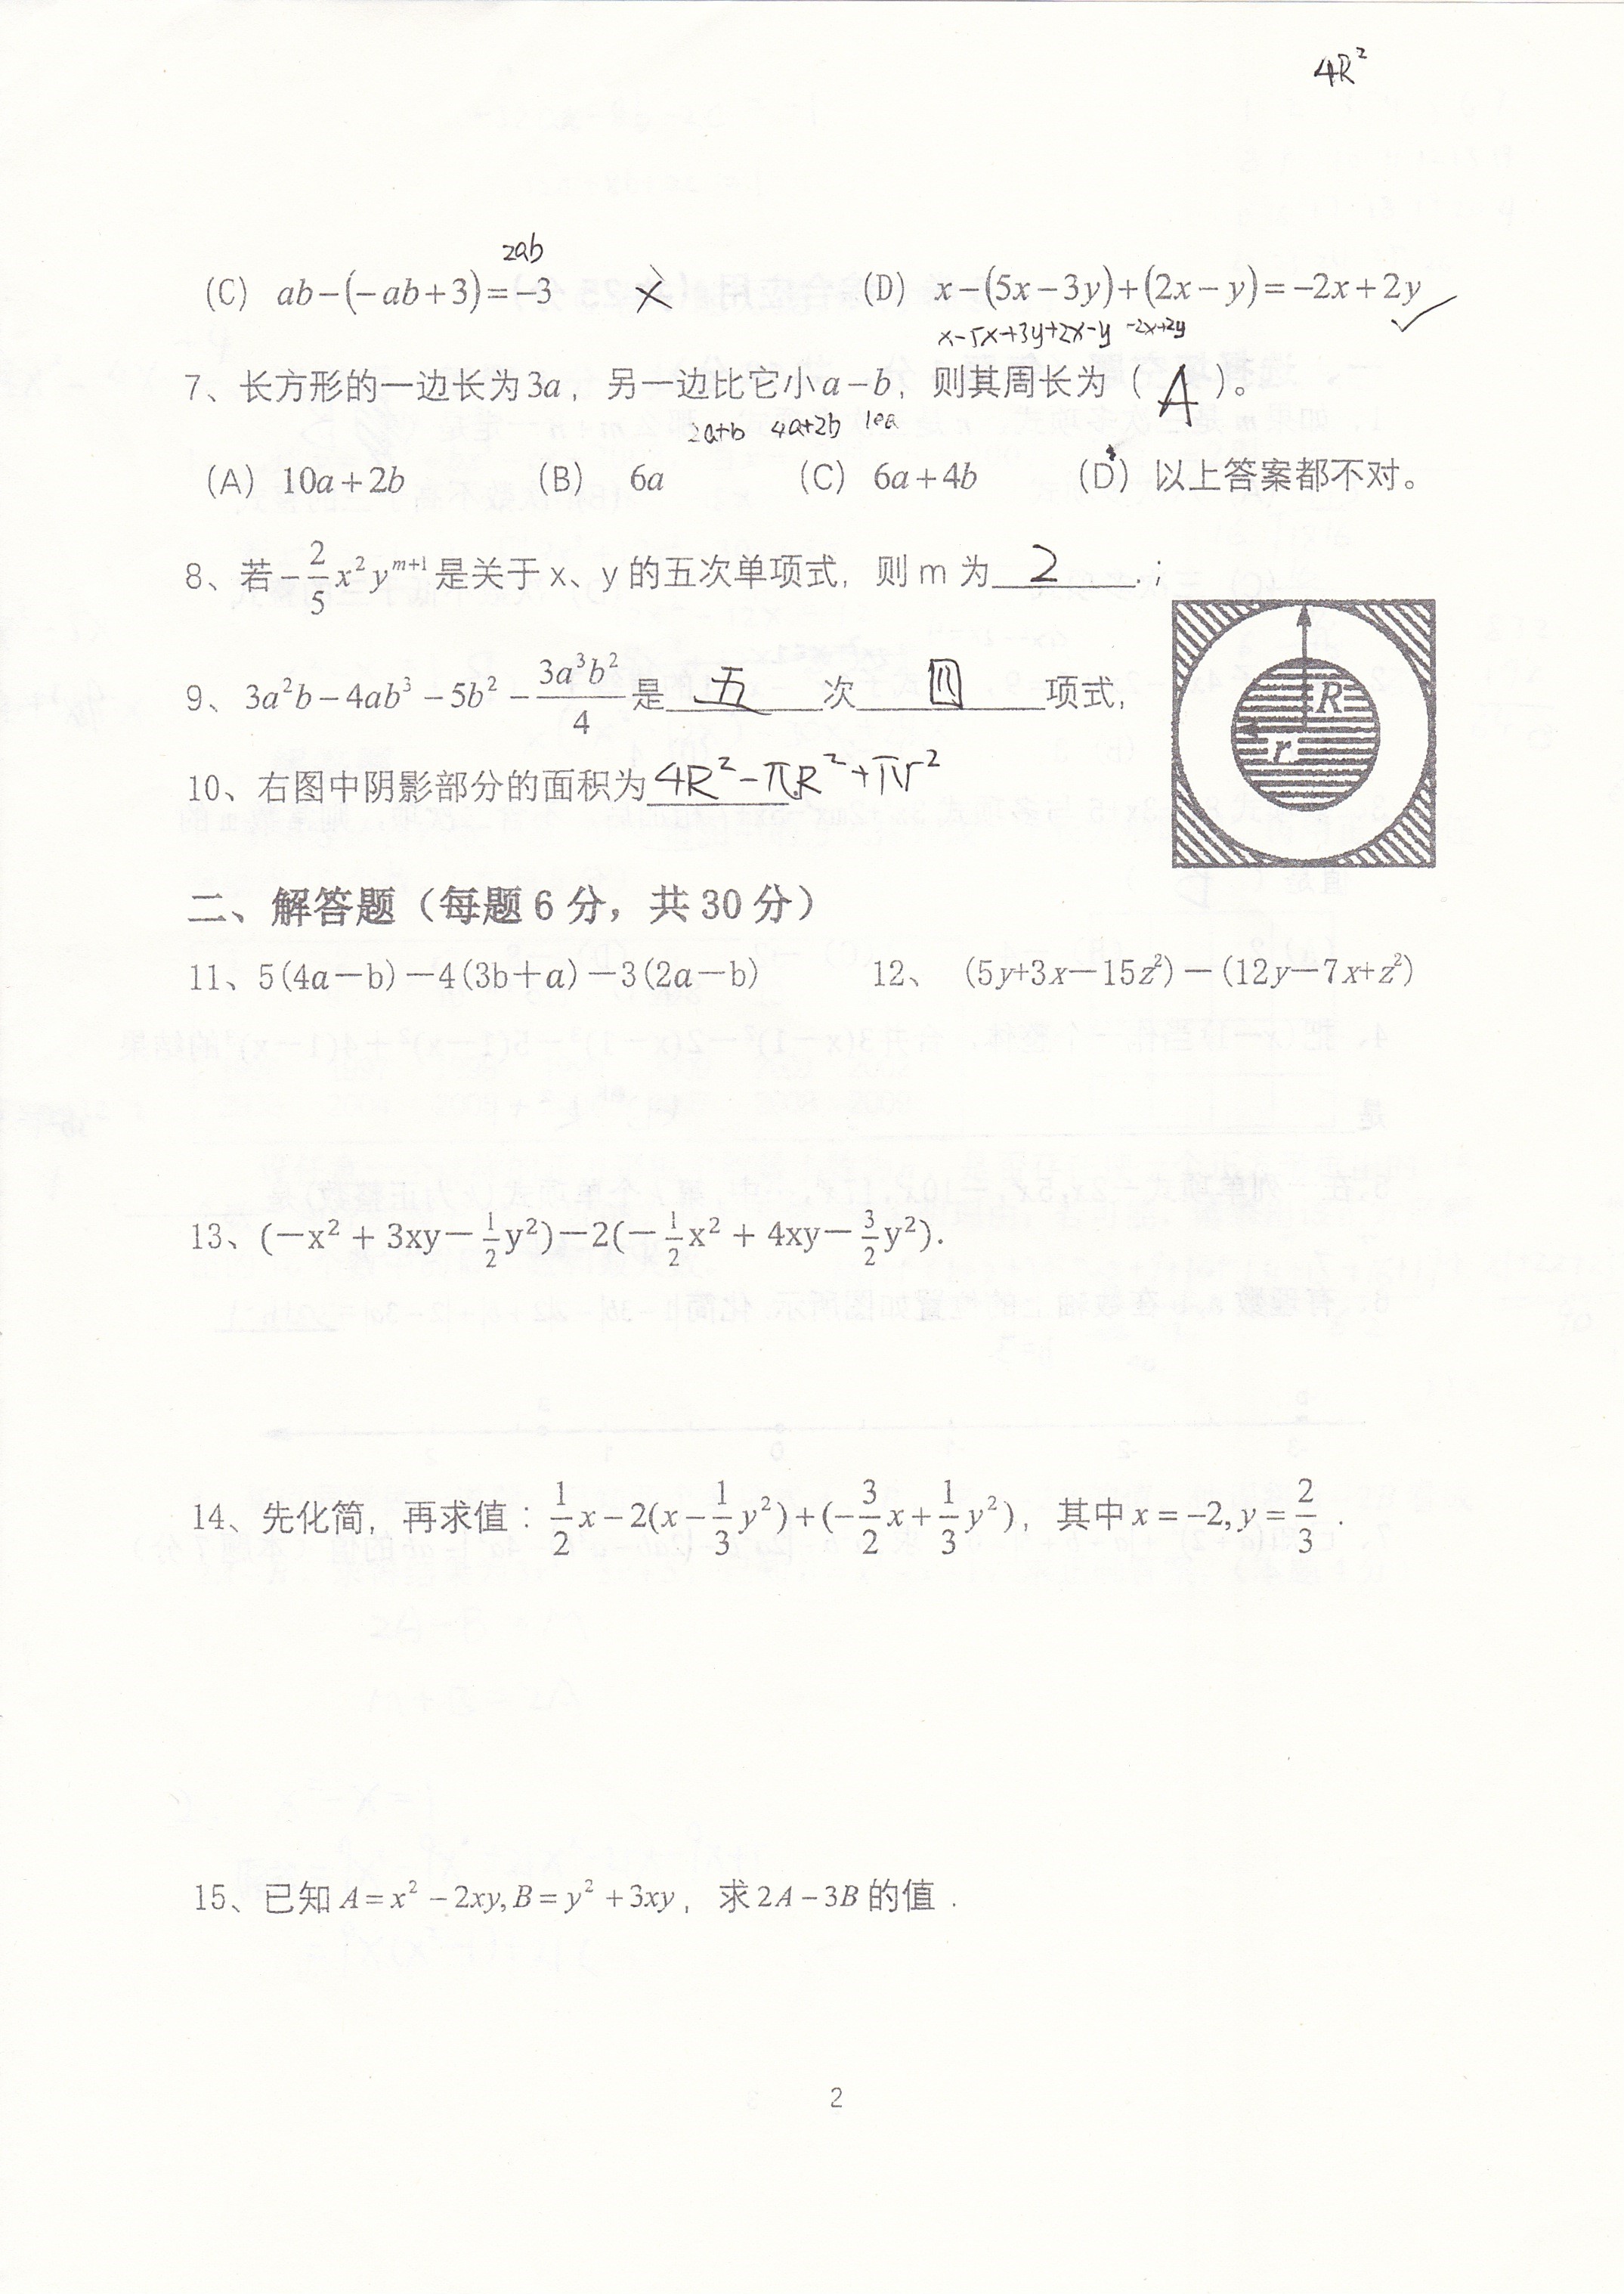 4R²
2ab
(C) ab-(-ab+3)=-3 × (D) x-(5x-3y)+(2x-y)=-2x+2y ✓
x-5x+3y+2x-y -2x+2y
7、长方形的一边长为3a，另一边比它小a-b，则其周长为（A）。
2a+b 4a+2b 10a
(A) 10a+2b (B) 6a (C) 6a+4b (D) 以上答案都不对。
8、若-2/5x²y^(m+1)是关于x、y的五次单项式，则m为 2 .;
9、3a²b-4ab³-5b²-3a³b²/4是 五 次 四 项式，
10、右图中阴影部分的面积为4R²-πR²+πr²
R
r
二、解答题（每题6分，共30分）
11、5(4a-b)-4(3b+a)-3(2a-b) 12、 (5y+3x-15z²)-(12y-7x+z²)
13、(-x²+3xy-1/2y²)-2(-1/2x²+4xy-3/2y²).
14、先化简，再求值：1/2x-2(x-1/3y²)+(-3/2x+1/3y²)，其中x=-2,y=2/3.
15、已知A=x²-2xy,B=y²+3xy，求2A-3B的值.
2